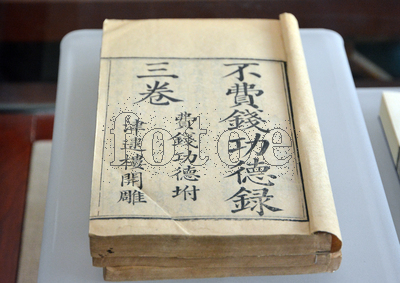 不費錢功德録
三卷
費錢功德坿
肆逑樓開雕
fotoe